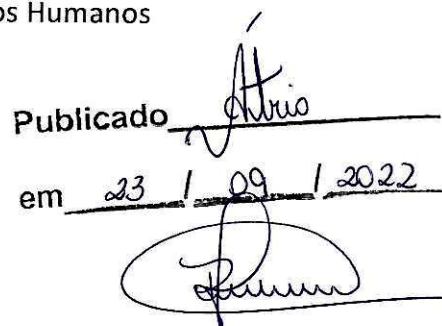 os Humanos
Publicado Átrio
em 23 / 09 / 2022